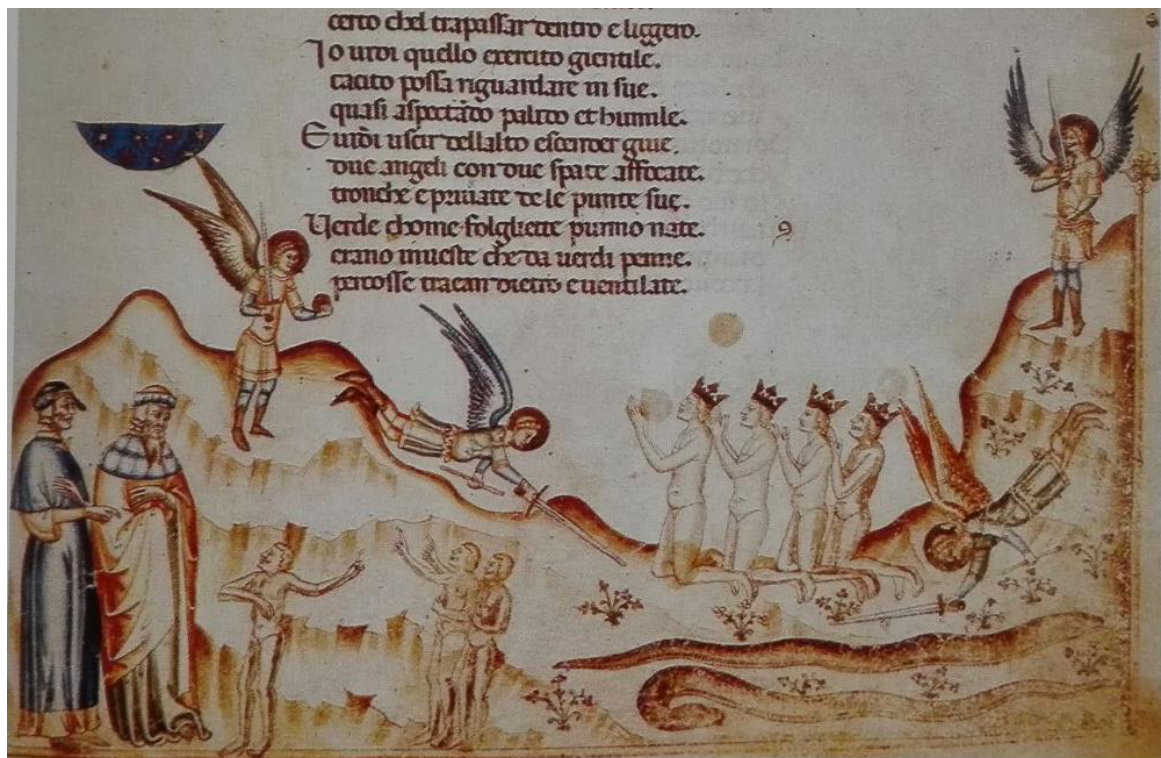 certo chel trapassar dentro e liggero.
Io uidi quello exercito gientile.
tacito possa riguardare in sue.
quasi aspectādo palido et humile.
E uidi uscir dellalto escender giue.
due angeli con due spate affocate.
tronche e priuate de le punte sue.
Uerde chome folgliette purmo nate.
erano inueste che da uerdi penne.
percosse traean dietro e uentilate.